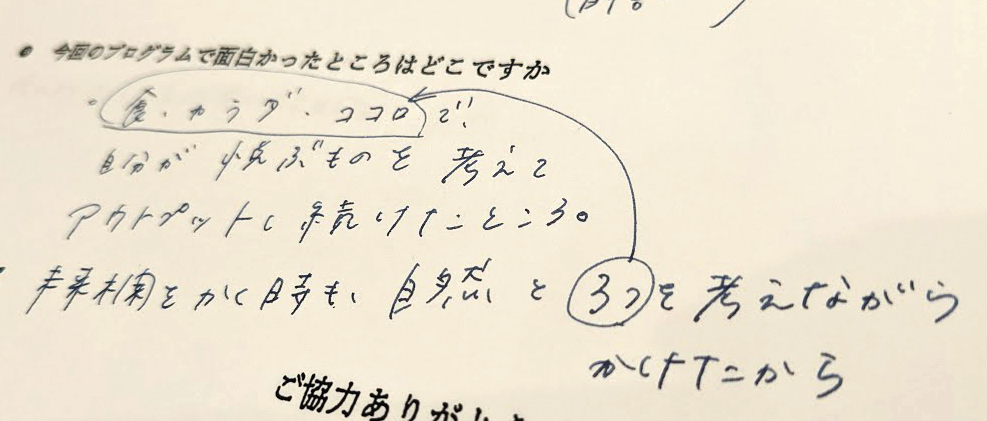 ● 今回のプログラムで面白かったところはどこですか
・食・カラダ・ココロで、
自分が悦ぶものを考えて
アウトプットし続けたところ。
・未来横をかく時も、自然と3つを考えながら
かけたから
ご協力ありがとう